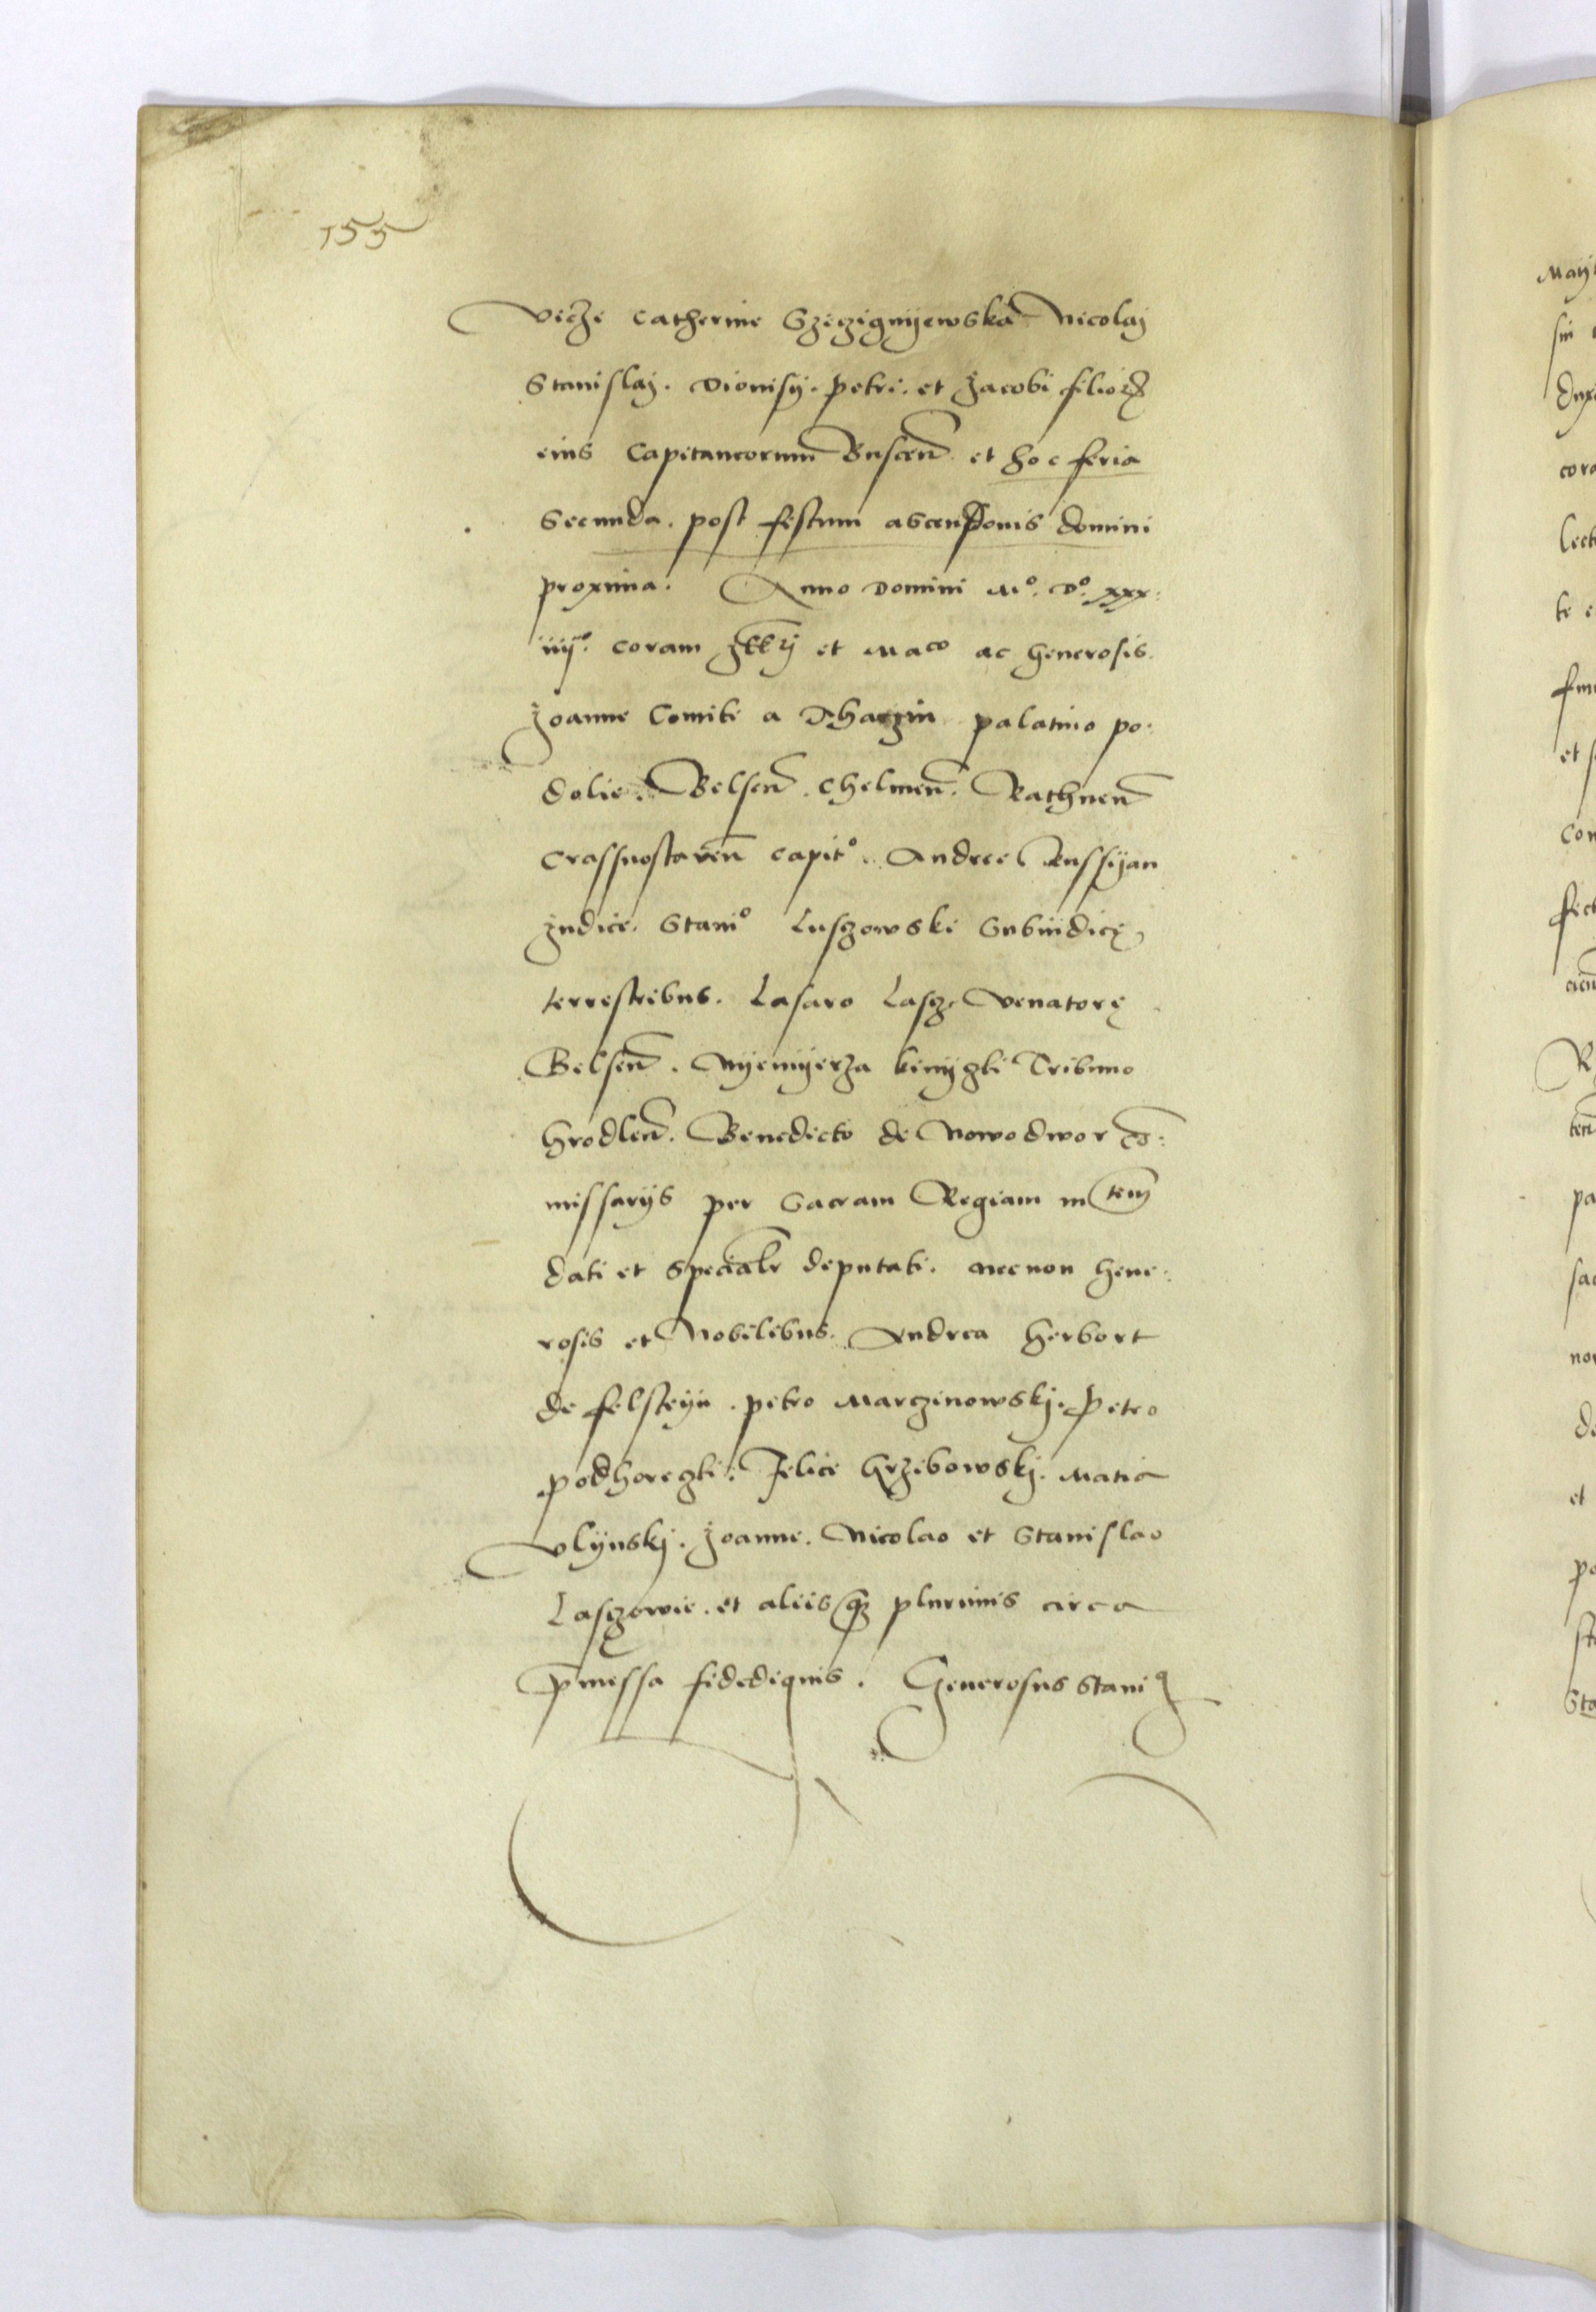 155
viczi Catherine Szczignyewska Nicolaj
Stanislaj. Dionisij. petri. et Jacobi filioꝝ
eius Capitaneorum Buscen̄ et hoc feria
Secunda. post festum ascensionis domini
proxima. Anno Domini Mº. Dº. xxx:
iiijº. coram et Maco ac Generosis.
Joanne Comite a Tharzin palatino po:
dolie. Belsen̄. Chelmen̄. Rathnen̄
Crassnostaven̄ capitº. Andree Russyan
Judice. Staniº Luszowski Subiudicę
terrestribus. Lasaro Lasz. Venatorę
Belsen̄. Myemyerza kunyzki Tribuno
Hrodlen̄. Benedicto de Nowodwor cō:
missarijs per Sacram Regiam mtem̄
dati et specialr deputati. nec non Gene:
rosis et Nobilibus. Andrea Herbort
de felsteyn. petro Marczinowskj. Petro
podhorezki. Felice Grzibowskj. Matia
Vlynskj. Joanne. Nicolao et Stanislao
Laszowie. et aliis qꝫ plurimis circa
p̄messa fidedignis. Generosus Staniꝰ
May
sin
dux
cora
lect
te
fin
et
con
fec
R
ten
pa
sa
no
de
et
pe
st
Sta